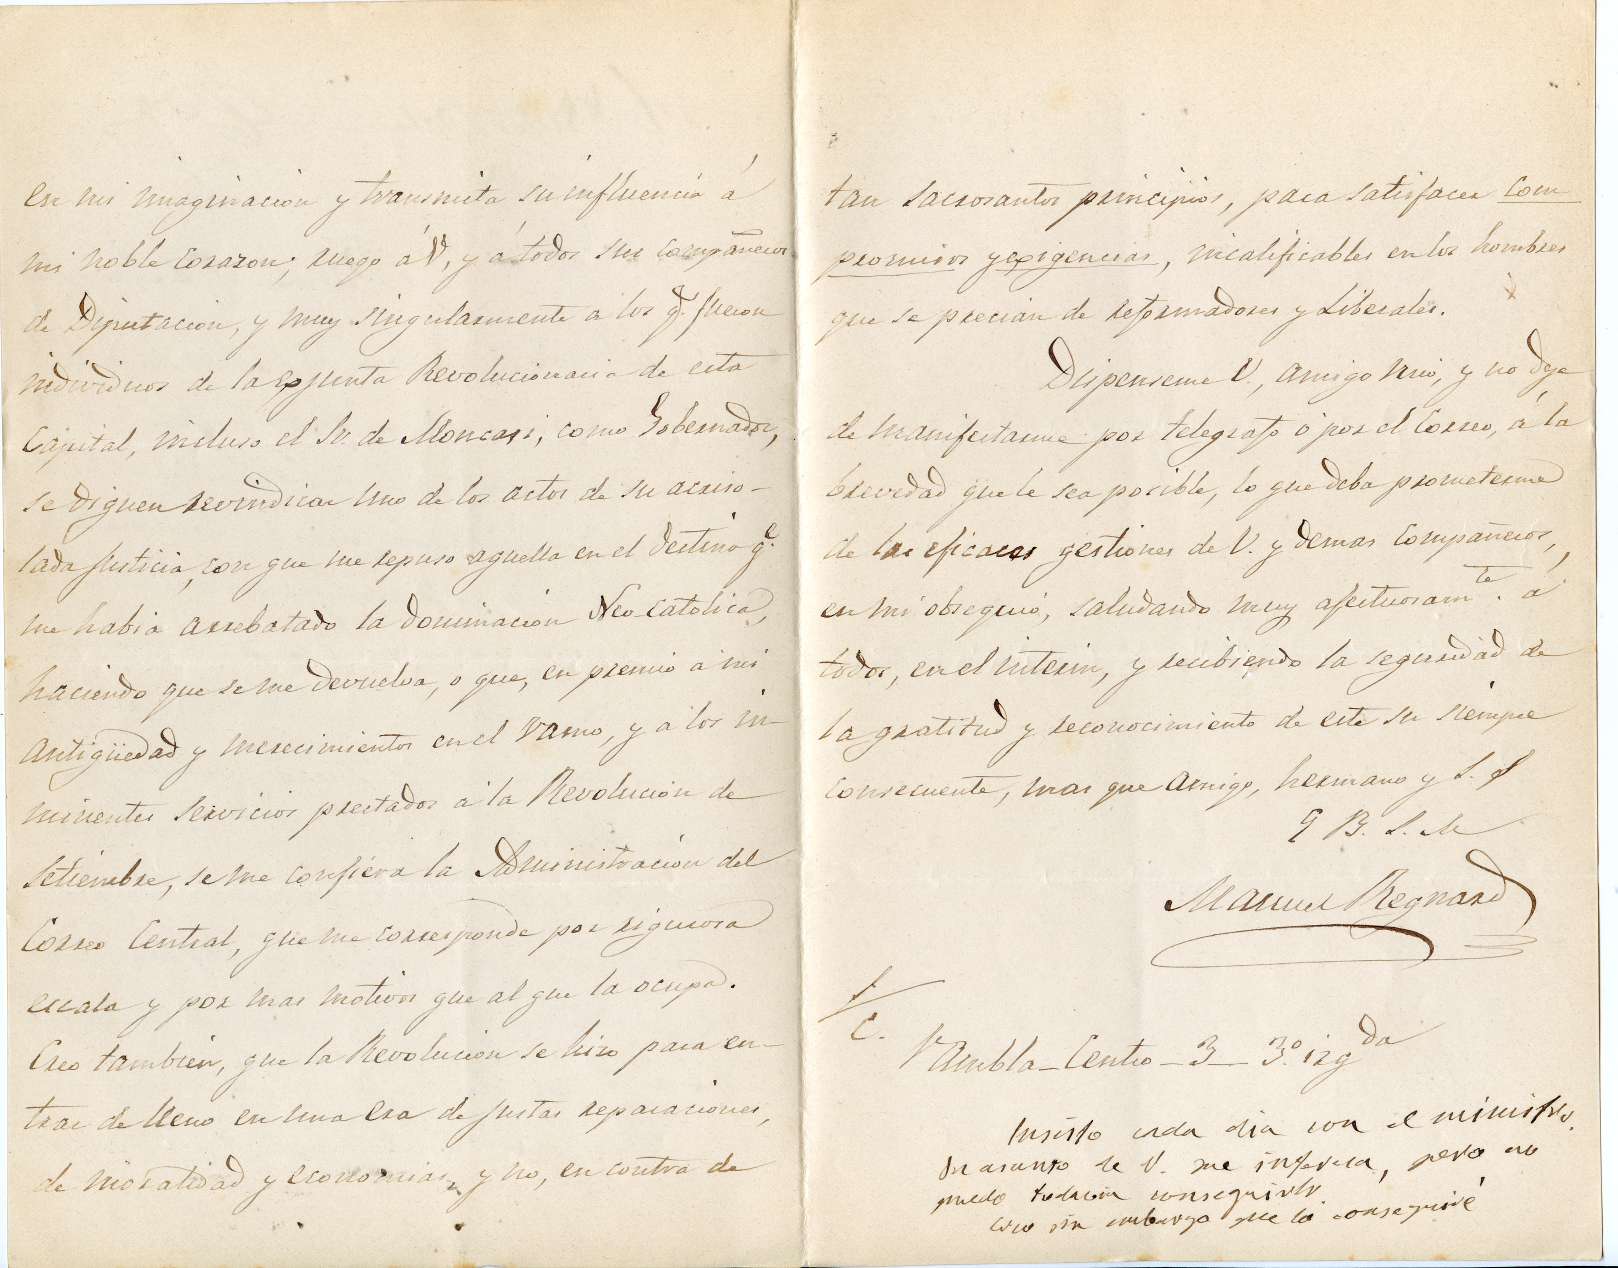 en mi imaginacion y transmita su influencia á
mi noble corazon; ruego á V, y á todos sus compañeros
de Diputacion, y muy singularmente a los qe. fueron
individuos de la exjunta Revolucionaria de esta
Capital, incluso el Sr. de Moncasi, como Gobernador,
se dignen revindicar uno de los actos de su acriso-
lada justicia, con que me repuso aquella en el destino qe.
me habia arrebatado la dominacion Neo-catolica,
haciendo que se me devuelva, o que, en premio a mi
antigüedad y merecimientos en el ramo, y a los in-
minentes servicios prestados a la Revolucion de
Setiembre, se me confiera la Administracion del
Correo Central, que me corresponde por rigurosa
escala y por mas motivos que al que la ocupa.
Creo tambien, que la Revolucion se hizo para en-
trar de lleno en una era de justas reparaciones,
de moralidad y economias, y no, en contra de
tan sacrosantos principios, para satisfacer com-
promisos y exigencias, incalificables en los hombres
que se precian de reformadores y Liberales.
Dispenseme V., amigo mio, y no deje
de manifestarme por telegrafo ó por el Correo, á la
brevedad que le sea posible, lo que deba prometerme
de las eficaces gestiones de V. y demas compañeros,
en mi obsequio, saludando muy afectuosamte. á
todos, en el interin, y recibiendo la seguridad de
la gratitud y reconocimiento de este su siempre
consecuente, mas que amigo, hermano y S. S
Q B. S. M
Manuel Regnard
S/C.
Rambla - Centro - 3 - 3.º izqda
Insisto cada dia con el ministro.
Su asunto de V. me interesa, pero no
puedo todavia conseguirlo.
Creo sin embargo que lo conseguiré